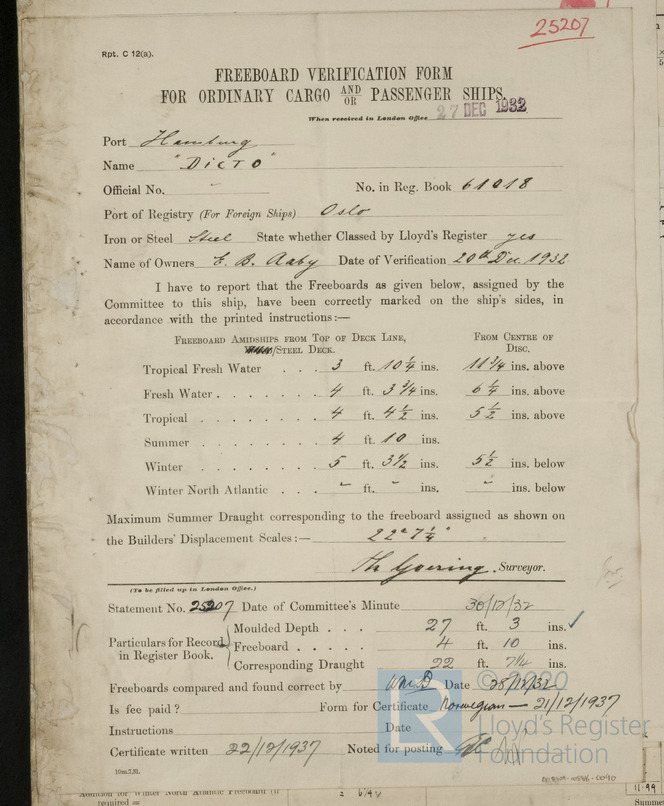 25207
Rpt. C 12(a).
FREEBOARD VERIFICATION FORM
FOR ORDINARY CARGO AND/OR PASSENGER SHIPS.
When received in London Office 27 DEC 1932
Port Hamburg
Name "DICTO"
Official No. No. in Reg. Book 61018
Port of Registry (For Foreign Ships) Oslo
Iron or Steel Steel State whether Classed by Lloyd's Register yes
Name of Owners E. B. Aaby Date of Verification 20th Dec. 1932
I have to report that the Freeboards as given below, assigned by the
Committee to this ship, have been correctly marked on the ship's sides, in
accordance with the printed instructions:—
Freeboard Amidships from Top of Deck Line, From Centre of
/Steel Deck. Disc.
Tropical Fresh Water . . . 3 ft. 10 1/4 ins. 11 3/4 ins. above
Fresh Water . . . . . . . 4 ft. 3 3/4 ins. 6 1/4 ins. above
Tropical . . . . . . . . 4 ft. 4 1/2 ins. 5 1/2 ins. above
Summer . . . . . . . . 4 ft. 10 ins.
Winter . . . . . . . . 5 ft. 3 1/2 ins. 5 1/2 ins. below
Winter North Atlantic . . . " ft. " ins. " ins. below
Maximum Summer Draught corresponding to the freeboard assigned as shown on
the Builders' Displacement Scales:— 22' 7 1/4"
Th Goering. Surveyor.
(To be filled up in London Office.)
Statement No. 25207 Date of Committee's Minute 30/12/32
Particulars for Record in Register Book.
Moulded Depth . . . 27 ft. 3 ins. ✓
Freeboard . . . . . 4 ft. 10 ins.
Corresponding Draught 22 ft. 7 1/4 ins.
Freeboards compared and found correct by Date 28/12/32
Is fee paid? Form for Certificate Norwegian — 21/12/1937
Instructions Date
Certificate written 22/12/1937 Noted for posting
10m.7.31.
© 2020
Lloyd's Register
Foundation
Addition for Winter North Atlantic Freeboard (if
required =
11.99
Summer